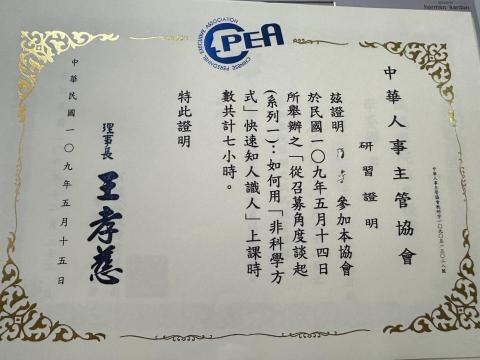 harman kardon
CPEA
CHINESE PERSONNEL EXECUTIVE ASSOCIATION
中華人事主管協會
研習證明
茲證明 參加本協會
於民國一〇九年五月十四日
所舉辦之「從召募角度談起
(系列一)：如何用「非科學方
式」快速知人識人」上課時
數共計七小時。
特此證明
理事長 王孝慈
中華民國一〇九年五月十五日